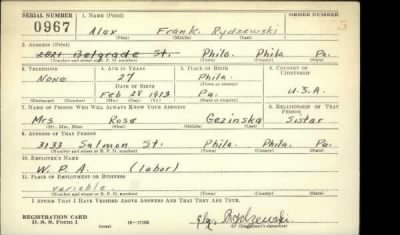 SERIAL NUMBER
1. NAME (Print)
ORDER NUMBER
0967
Alex Frank. Rydzewski
(First) (Middle) (Last)
2. ADDRESS (Print)
2021 Belgrade St. Phila. Phila Pa.
(Number and street or R. F. D. number) (Town) (County) (State)
3. TELEPHONE
4. AGE IN YEARS
5. PLACE OF BIRTH
6. COUNTRY OF CITIZENSHIP
None
27
Phila.
DATE OF BIRTH
(Town or county)
Feb 28 1913
Pa.
U.S.A.
(Exchange) (Number)
(Mo.) (Day) (Yr.)
(State or country)
7. NAME OF PERSON WHO WILL ALWAYS KNOW YOUR ADDRESS
8. RELATIONSHIP OF THAT PERSON
Mrs Rose Gezinska Sistar
(Mr., Mrs., Miss) (First) (Middle) (Last)
9. ADDRESS OF THAT PERSON
3133 Salmon St. Phila. Phila. Pa.
(Number and street or R. F. D. number) (Town) (County) (State)
10. EMPLOYER'S NAME
W. P. A. (labor)
11. PLACE OF EMPLOYMENT OR BUSINESS
variable
(Number and street or R. F. D. number) (Town) (County) (State)
I AFFIRM THAT I HAVE VERIFIED ABOVE ANSWERS AND THAT THEY ARE TRUE.
REGISTRATION CARD
D. S. S. Form 1
Rydzewski